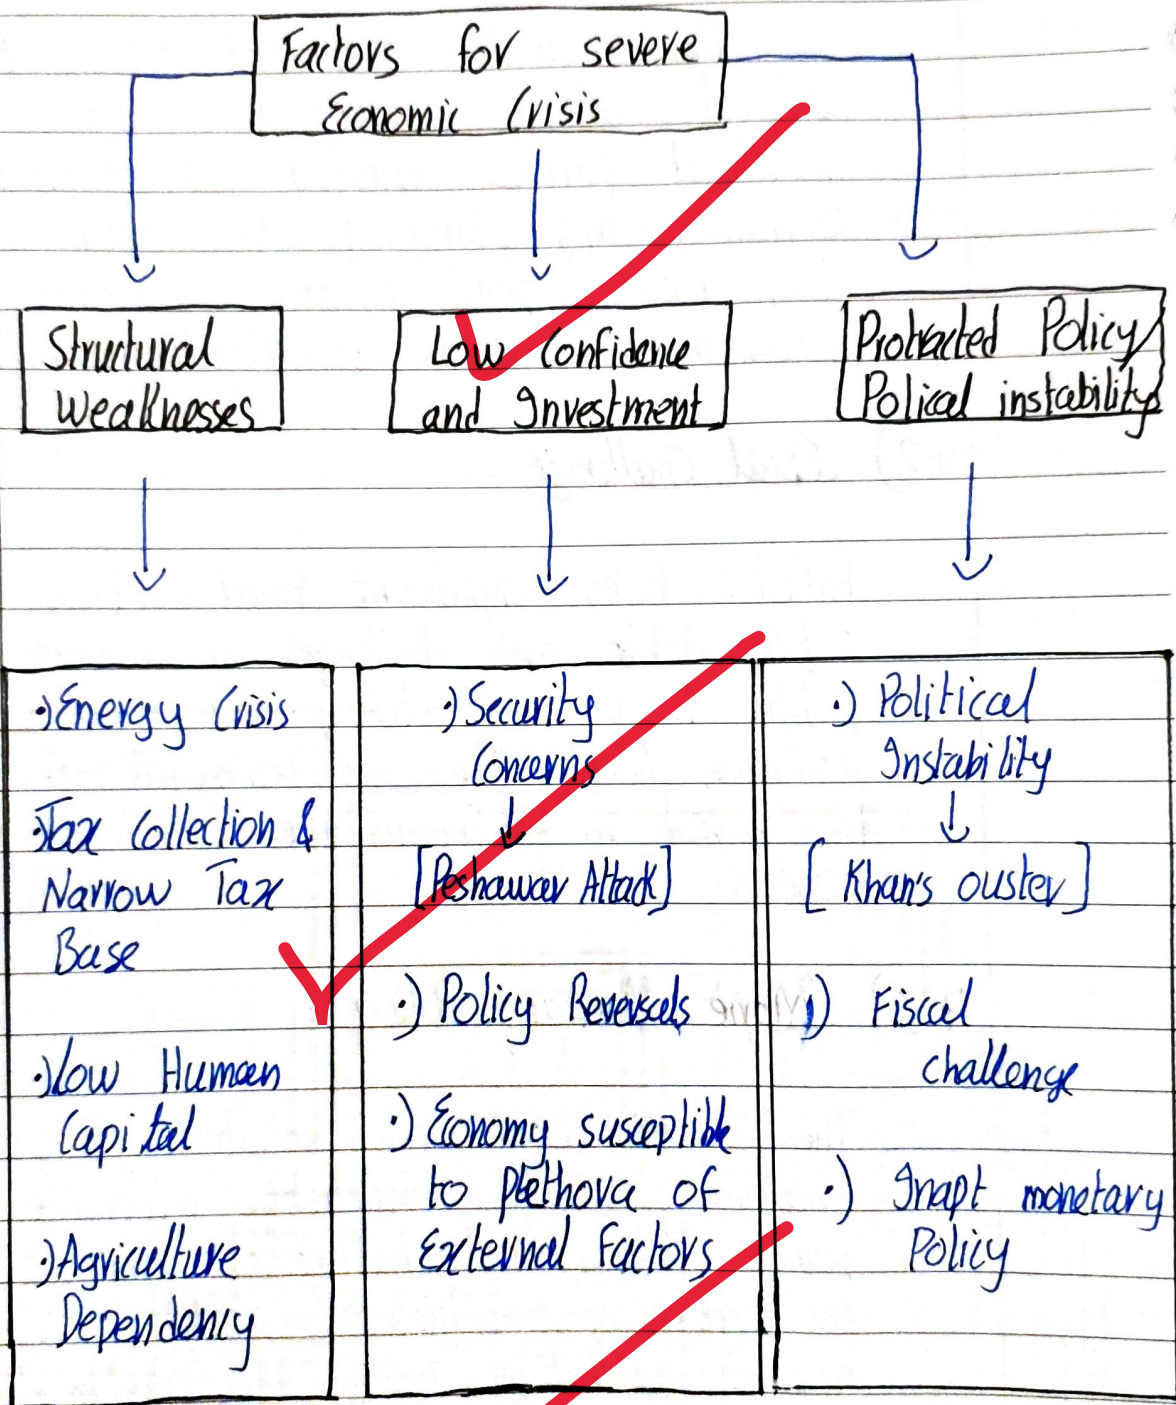 Factors for severe
Economic Crisis
Structural
Weaknesses
Low Confidence
and Investment
Protracted Policy/
Polical instability
•) Energy Crisis
•) Tax Collection &
Narrow Tax
Base
•) Low Human
Capital
•) Agriculture
Dependency
•) Security
Concerns
[Peshawar Attack]
•) Policy Reversals
•) Economy susceptible
to Plethora of
External Factors
•) Political
Instability
[Khan's ouster]
•) Fiscal
challenge
•) Inapt monetary
Policy